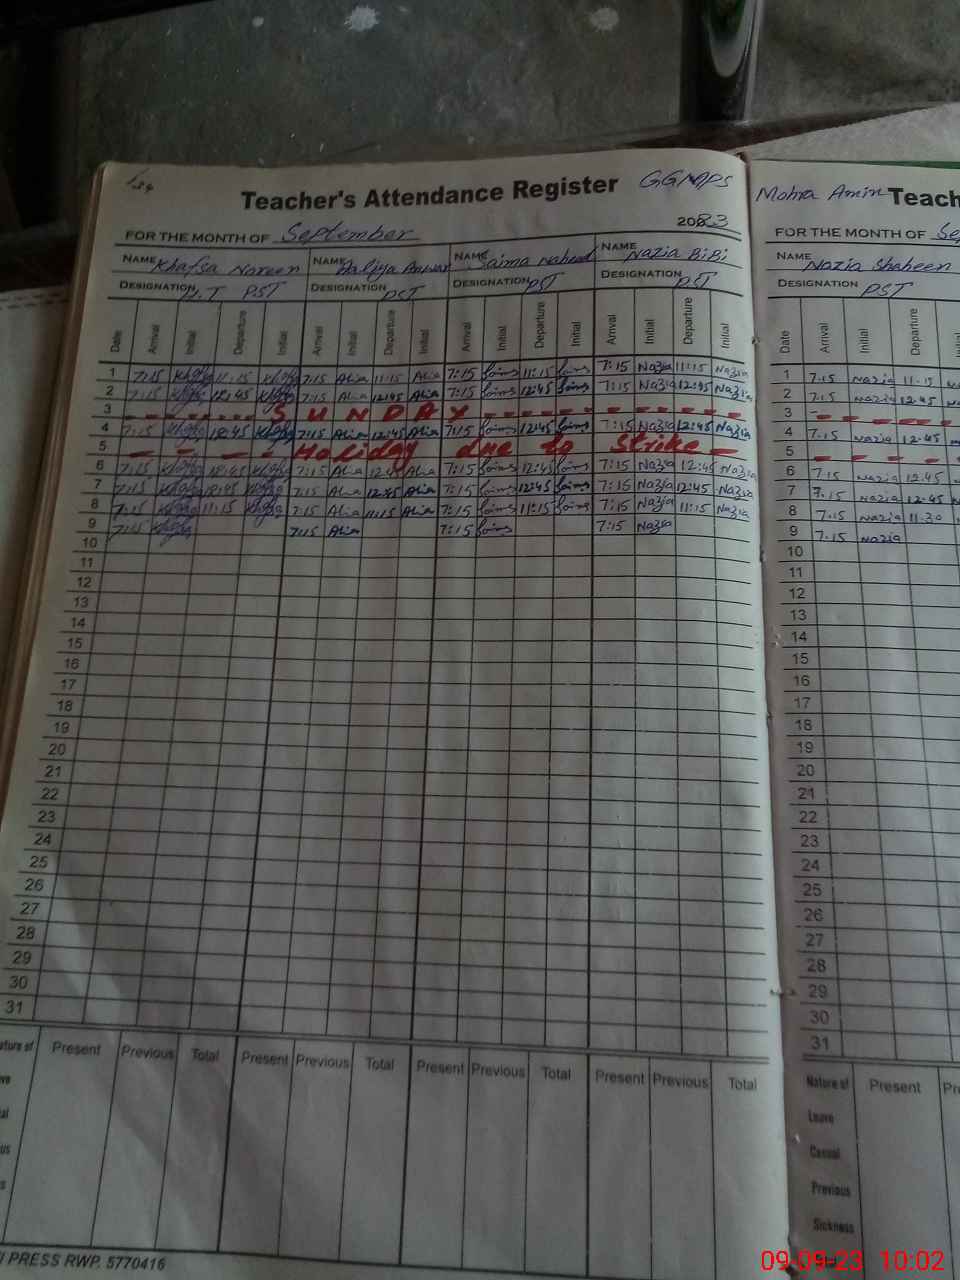 Teacher's Attendance Register GGMPS Mohra Amin Teach
2023
FOR THE MONTH OF September FOR THE MONTH OF Se
NAME Khafsa Noreen NAME Aaliya Anwar NAME Saima Naheed NAME Nazia BiBi NAME Nazia Shaheen
DESIGNATION PST DESIGNATION PST DESIGNATION PST PST DESIGNATION PST
Date Arrival Initial Departure Initial Arrival Initial Departure Initial Arrival Initial Departure Initial Arrival Initial Departure Initial Date Arrival Initial Departure
1 7:15 11:15 7:15 Alia 11:15 Alia 7:15 Saima 11:15 Saima 7:15 Nazia 11:15 Nazia 1 7.15 Nazia 11.15
2 7:15 12:45 7:15 Alia 12:45 Alia 7:15 Saima 12:45 Saima 7:15 Nazia 12:45 Nazia 2 7.15 Nazia 12.45
3 SUNDAY 3
4 7:15 12:45 7:15 Alia 12:45 Alia 7:15 Saima 12:45 Saima 7:15 Nazia 12:45 Nazia 4 7.15 Nazia 12.45
5 Holiday due to Strike 5
6 7:15 12:45 7:15 Alia 12:45 Alia 7:15 Saima 12:45 Saima 7:15 Nazia 12:45 Nazia 6 7.15 Nazia 12.45
7 7:15 12:45 7:15 Alia 12:45 Alia 7:15 Saima 12:45 Saima 7:15 Nazia 12:45 Nazia 7 7.15 Nazia 12.45
8 7:15 11:15 7:15 Alia 11:15 Alia 7:15 Saima 11:15 Saima 7:15 Nazia 11:15 Nazia 8 7.15 Nazia 11.30
9 7:15 7:15 Alia 7:15 Saima 7:15 Nazia 9 7.15 Nazia
10 10
11 11
12 12
13 13
14 14
15 15
16 16
17 17
18 18
19 19
20 20
21 21
22 22
23 23
24 24
25 25
26 26
27 27
28 28
29 29
30 30
31 31
Present Previous Total Present Previous Total Present Previous Total Present Previous Total Nature of Present Pr
Leave
Casual
Previous
Sickness
PRESS RWP. 5770416
09-09-23 10:02